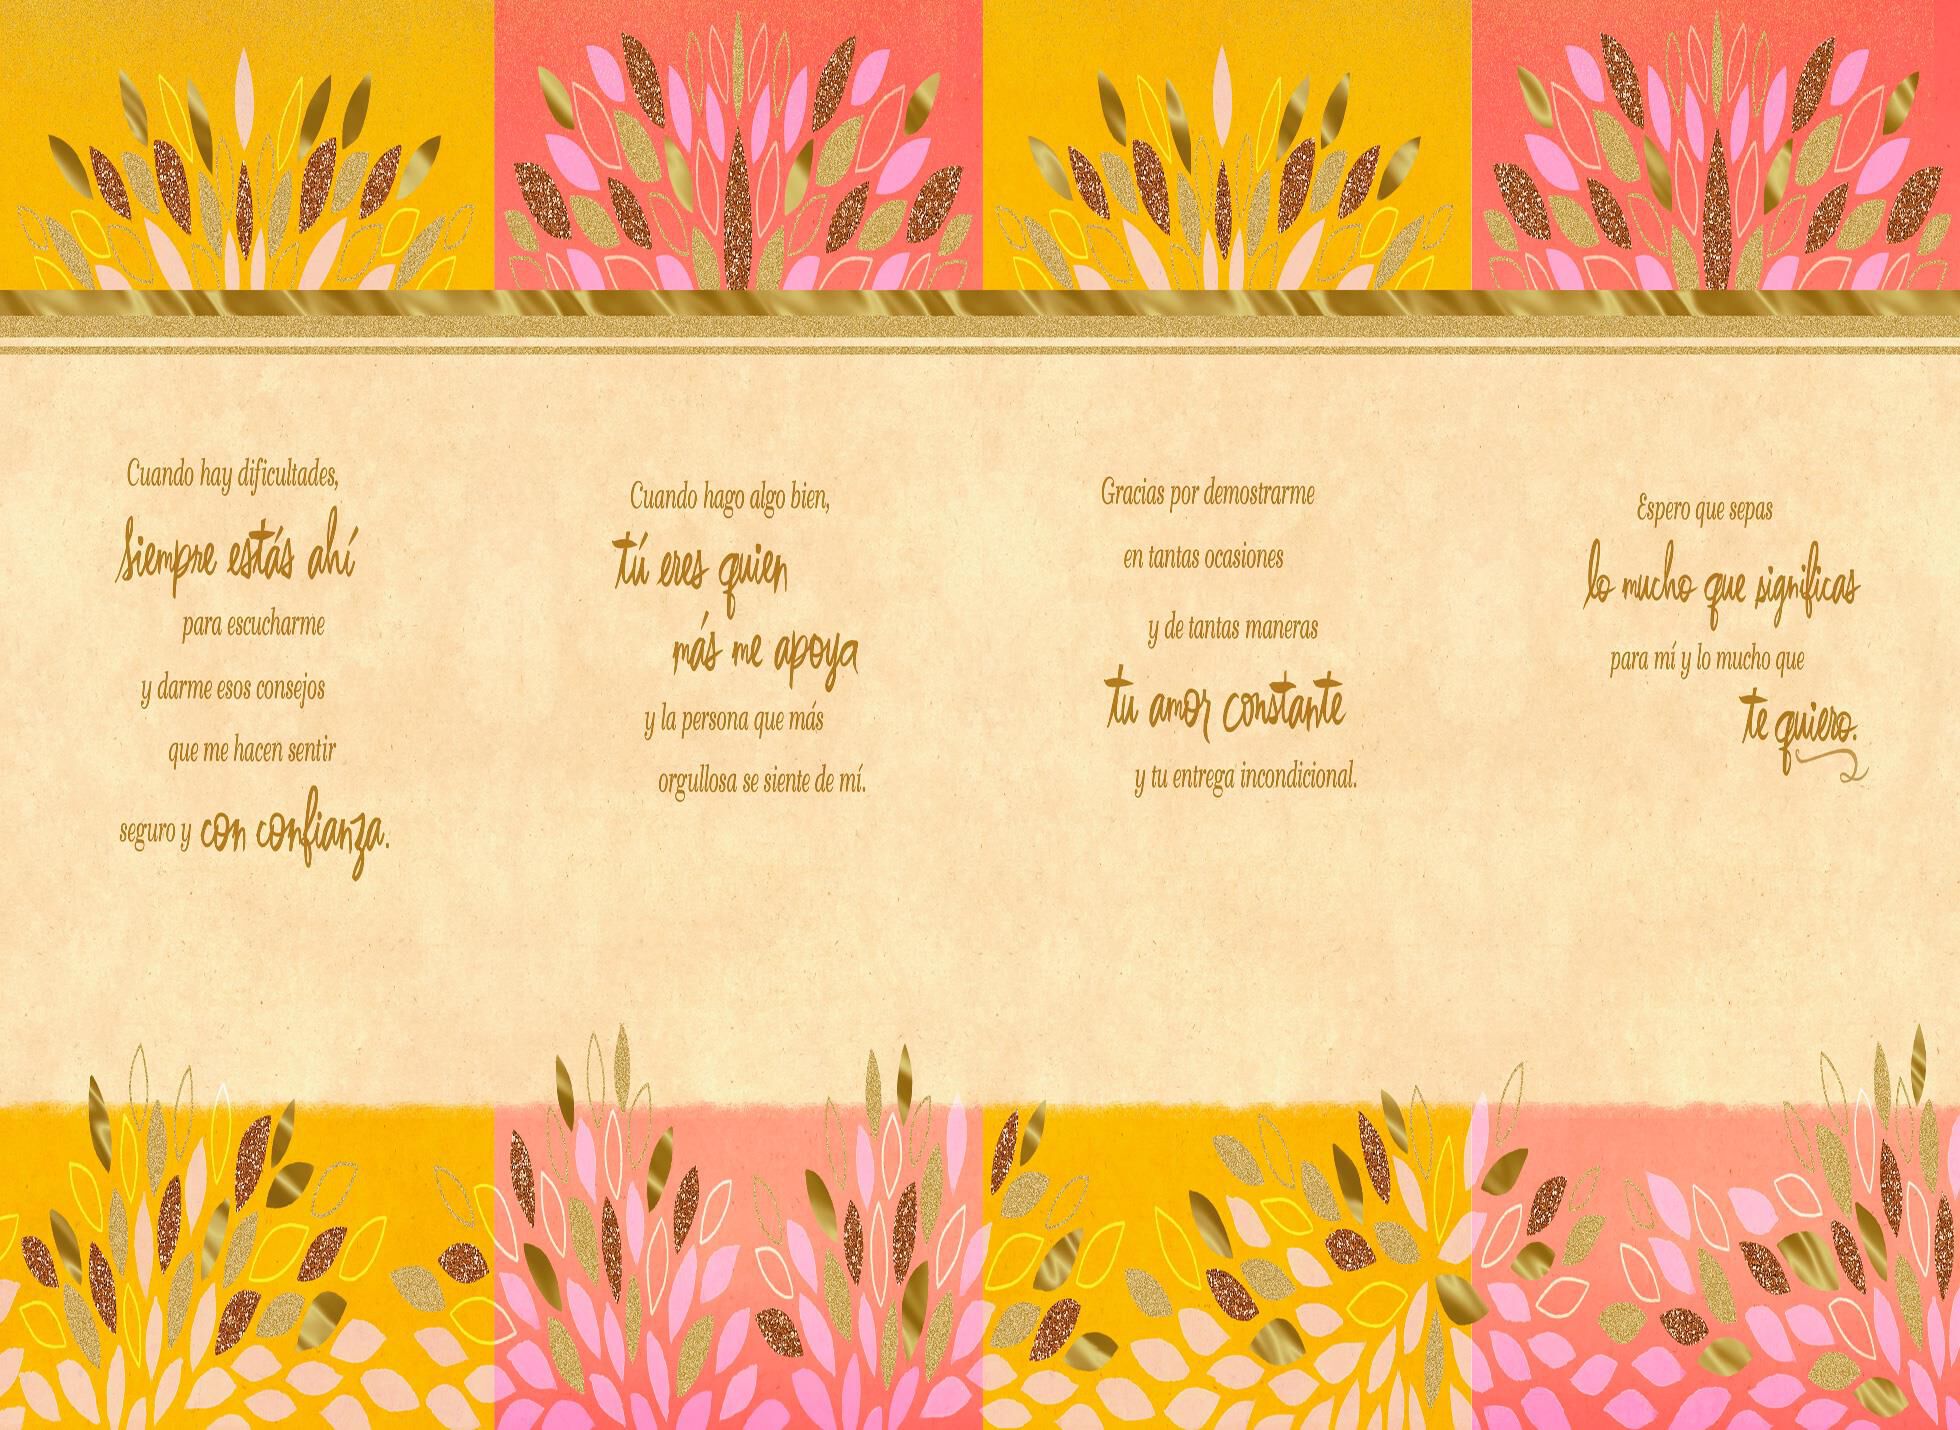 Cuando hay dificultades,
siempre estás ahí
para escucharme
y darme esos consejos
que me hacen sentir
seguro y con confianza.
Cuando hago algo bien,
tú eres quien
más me apoya
y la persona que más
orgullosa se siente de mí.
Gracias por demostrarme
en tantas ocasiones
y de tantas maneras
tu amor constante
y tu entrega incondicional.
Espero que sepas
lo mucho que significas
para mí y lo mucho que
te quiero.